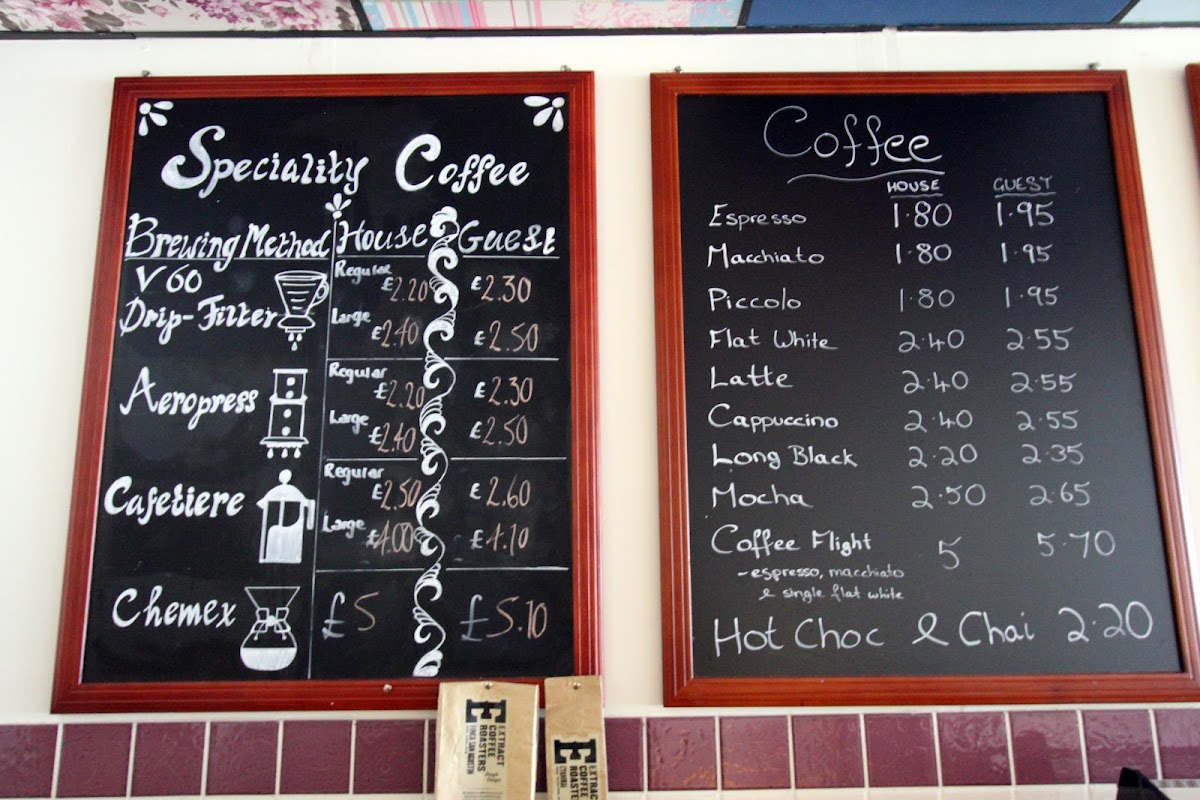 Speciality Coffee
Brewing Method House Guest
V60
Drip-Filter
Regular £2.20 £2.30
Large £2.40 £2.50
Aeropress
Regular £2.20 £2.30
Large £2.40 £2.50
Cafetiere
Regular £2.50 £2.60
Large £4.00 £4.10
Chemex £5 £5.10
Coffee
HOUSE GUEST
Espresso 1.80 1.95
Macchiato 1.80 1.95
Piccolo 1.80 1.95
Flat White 2.40 2.55
Latte 2.40 2.55
Cappuccino 2.40 2.55
Long Black 2.20 2.35
Mocha 2.50 2.65
Coffee Flight 5 5.70
- espresso, macchiato
& single flat white
Hot Choc & Chai 2.20
EXTRACT
COFFEE
ROASTERS
FINCA SAN AGUSTIN
EXTRACT
COFFEE
ROASTERS